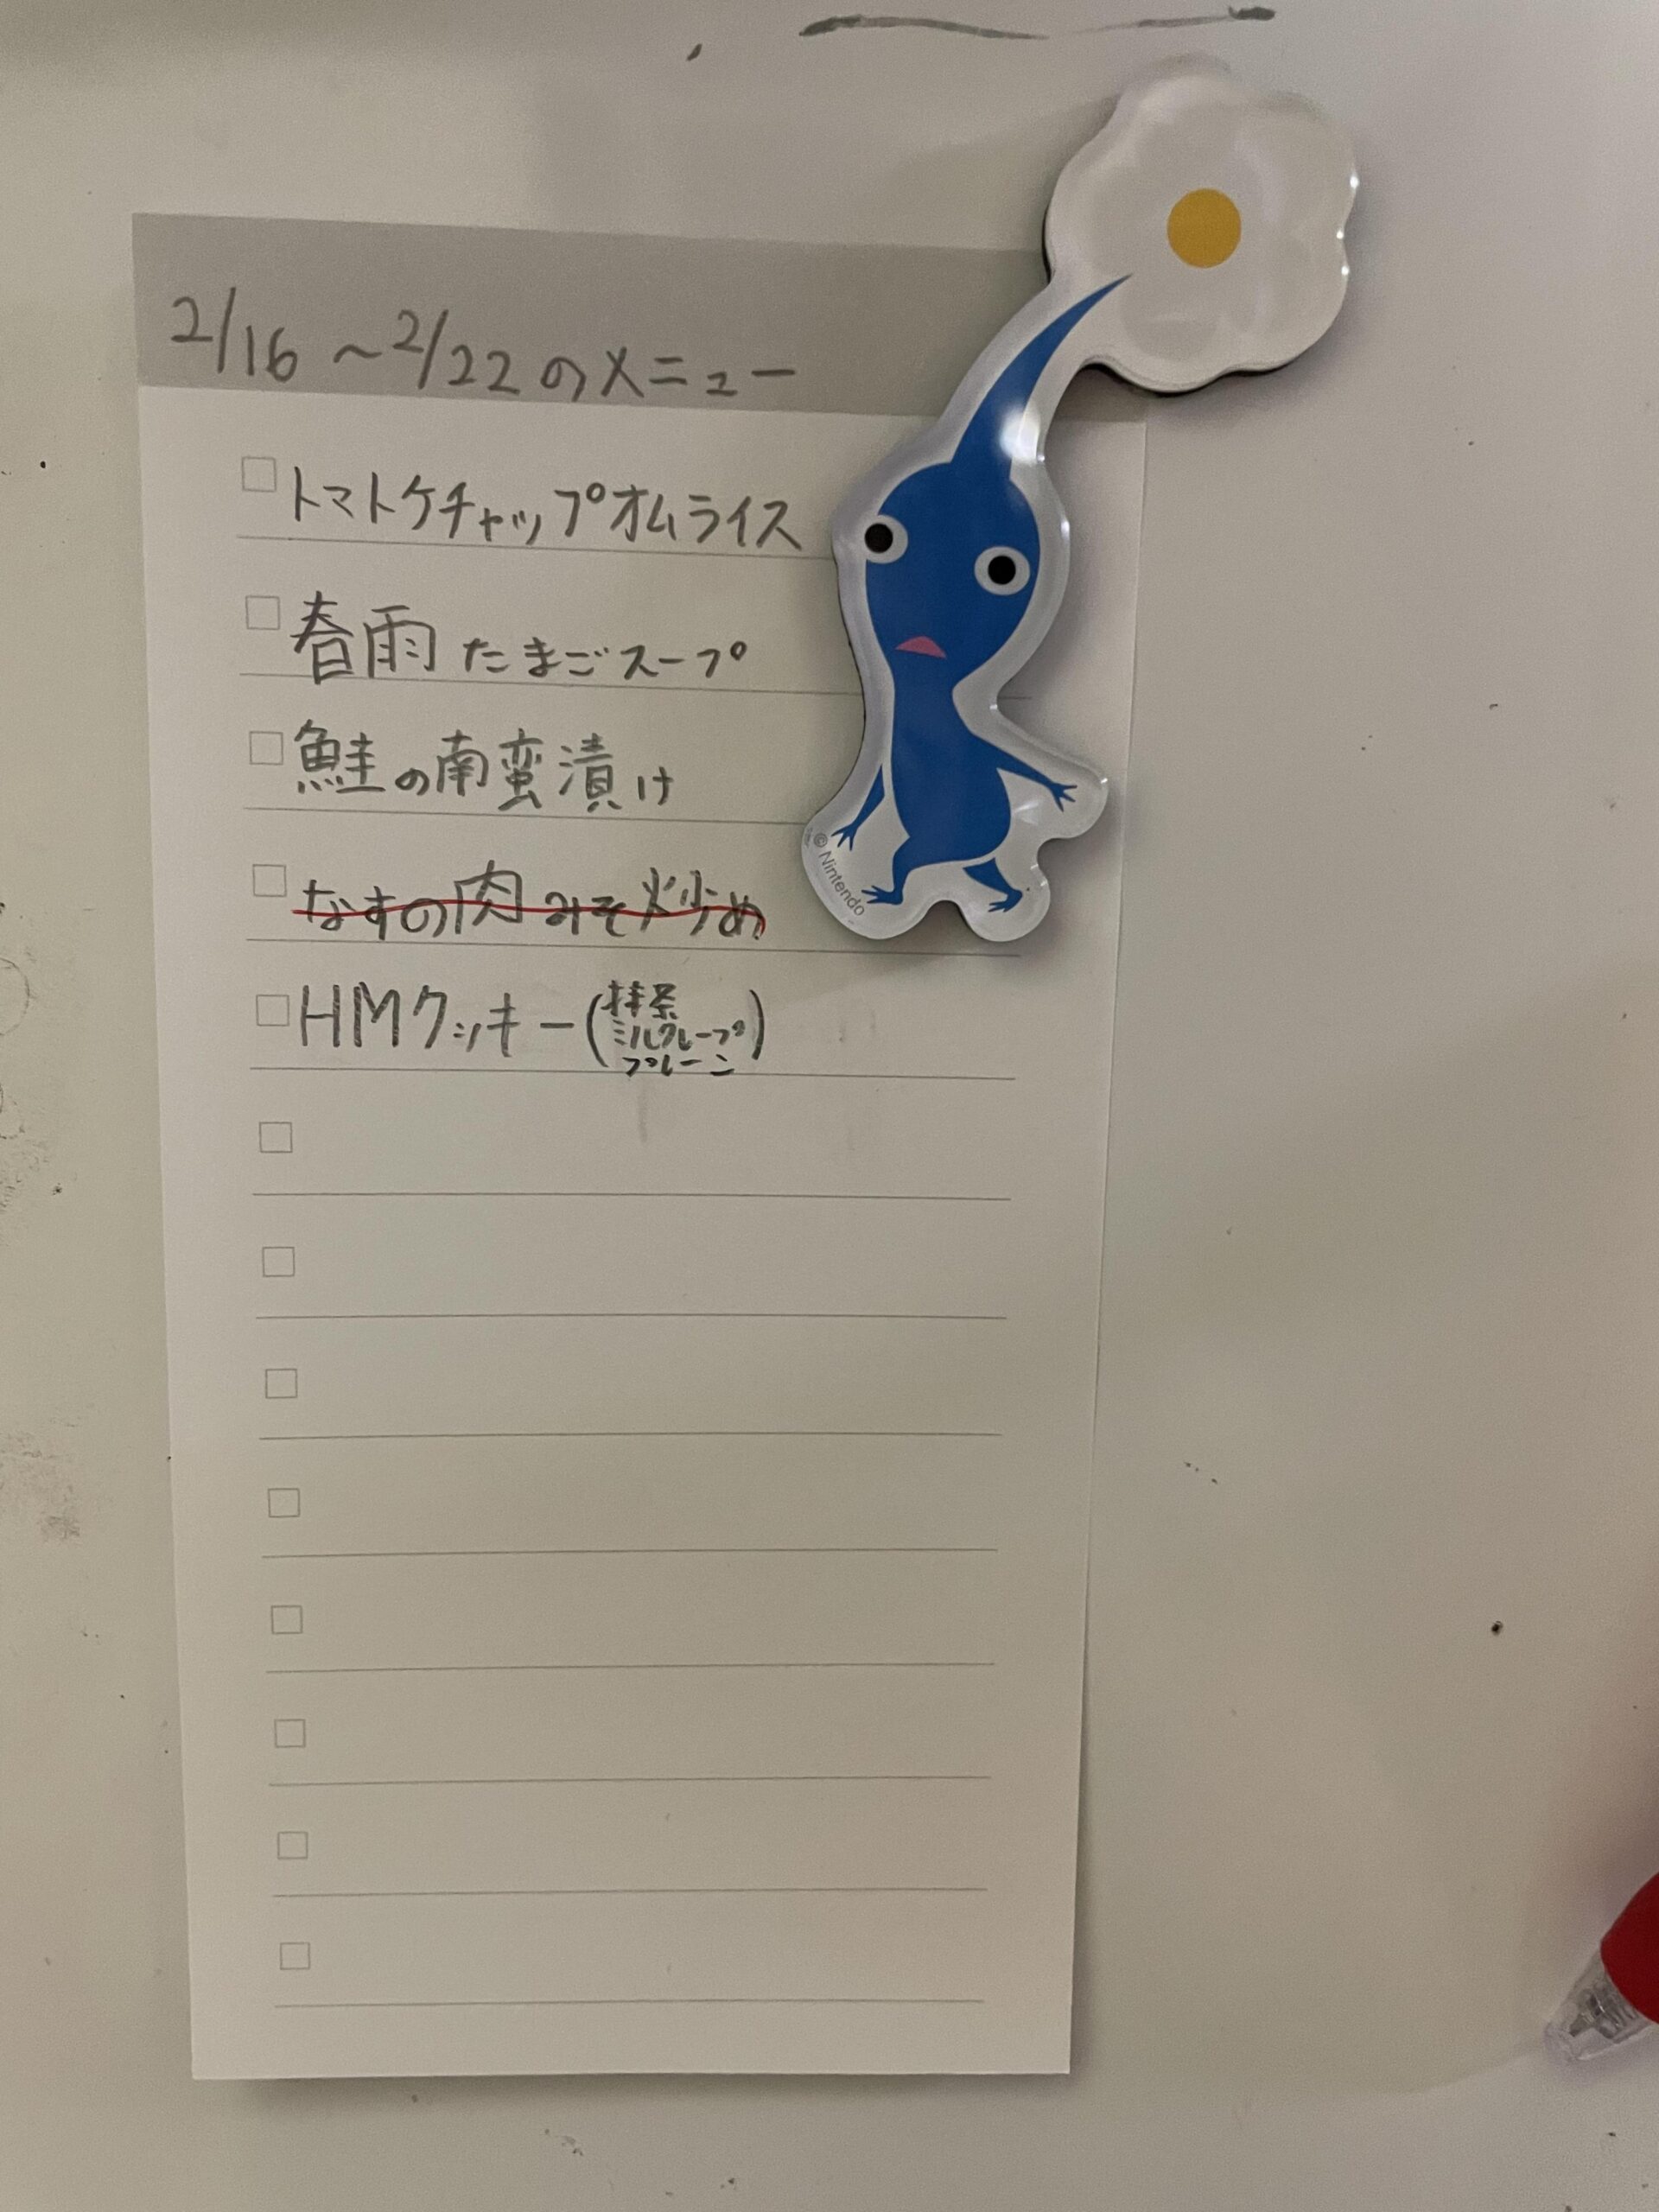 2/16 ~ 2/22 のメニュー
トマトケチャップオムライス
春雨たまごスープ
鮭の南蛮漬け
なすの肉みそ炒め
HMクッキー(抹茶
ミルクレープ
プレーン)
© Nintendo